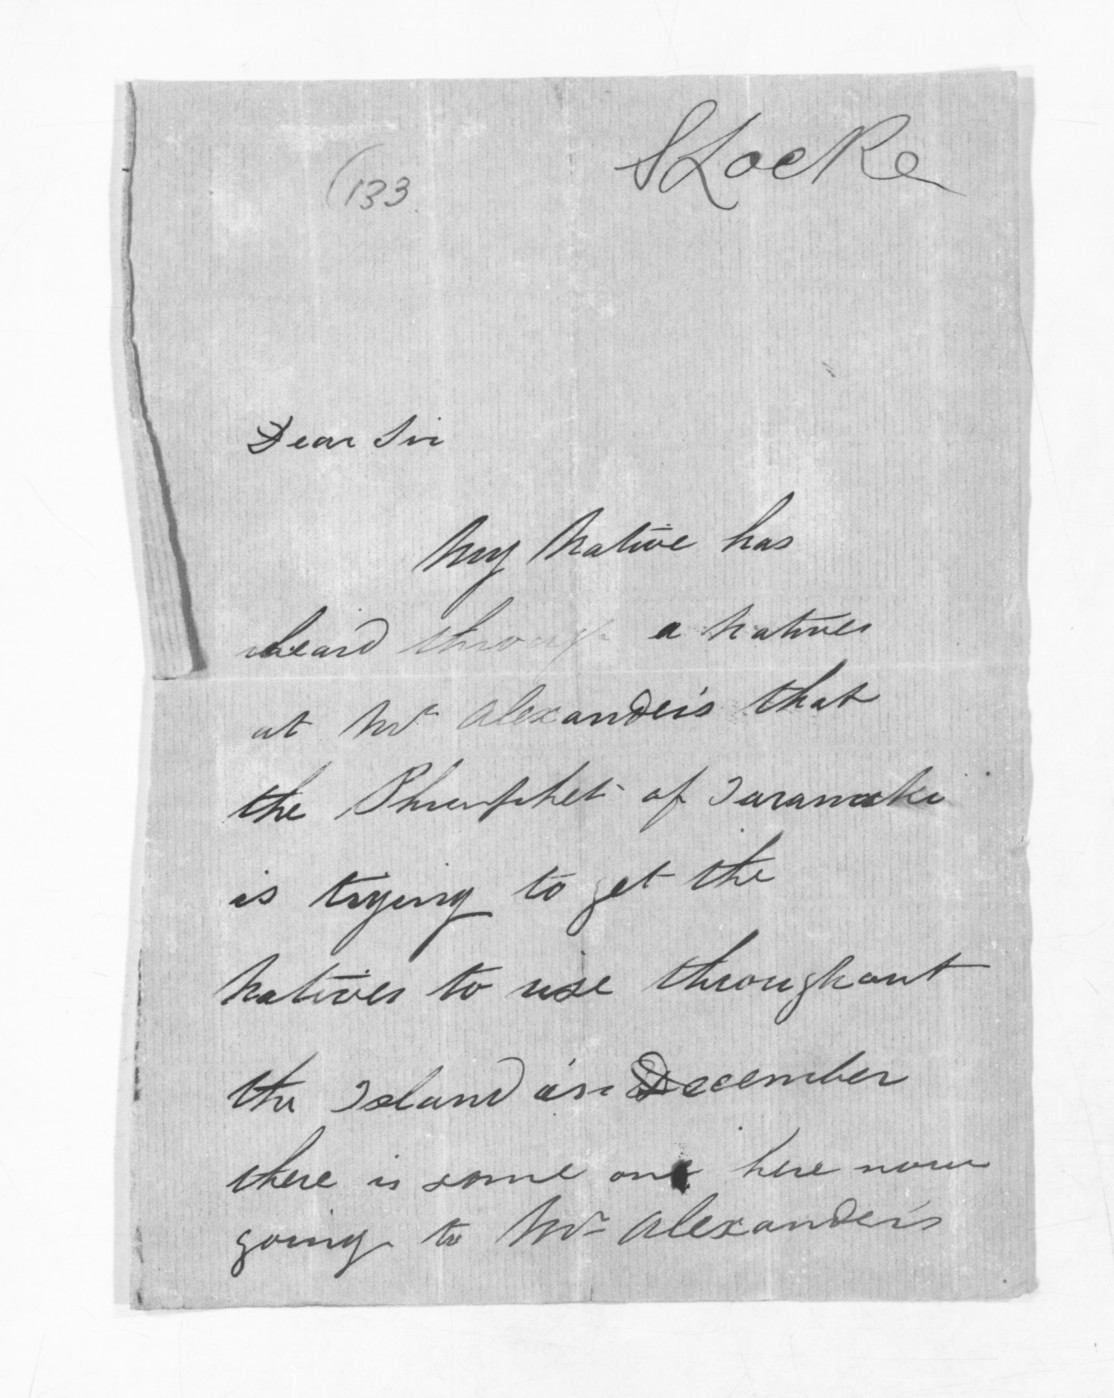 (133
S Locke
Dear Sir
My Native has
heard through a Natives
at Mr Alexander's that
the Phrophet of Taranaki
is trying to get the
Natives to rise throughout
the Island in December
there is some one here now
going to Mr Alexander's